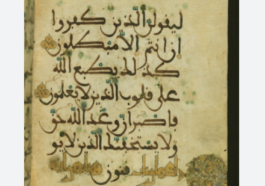 ليقولن الذين كفروا
ان انتم الا مبطلون
كذلك يطبع الله
على قلوب الذين لا يعلمون
فاصبر ان وعد الله حق
ولا يستخفنك الذين لا يو
قنون